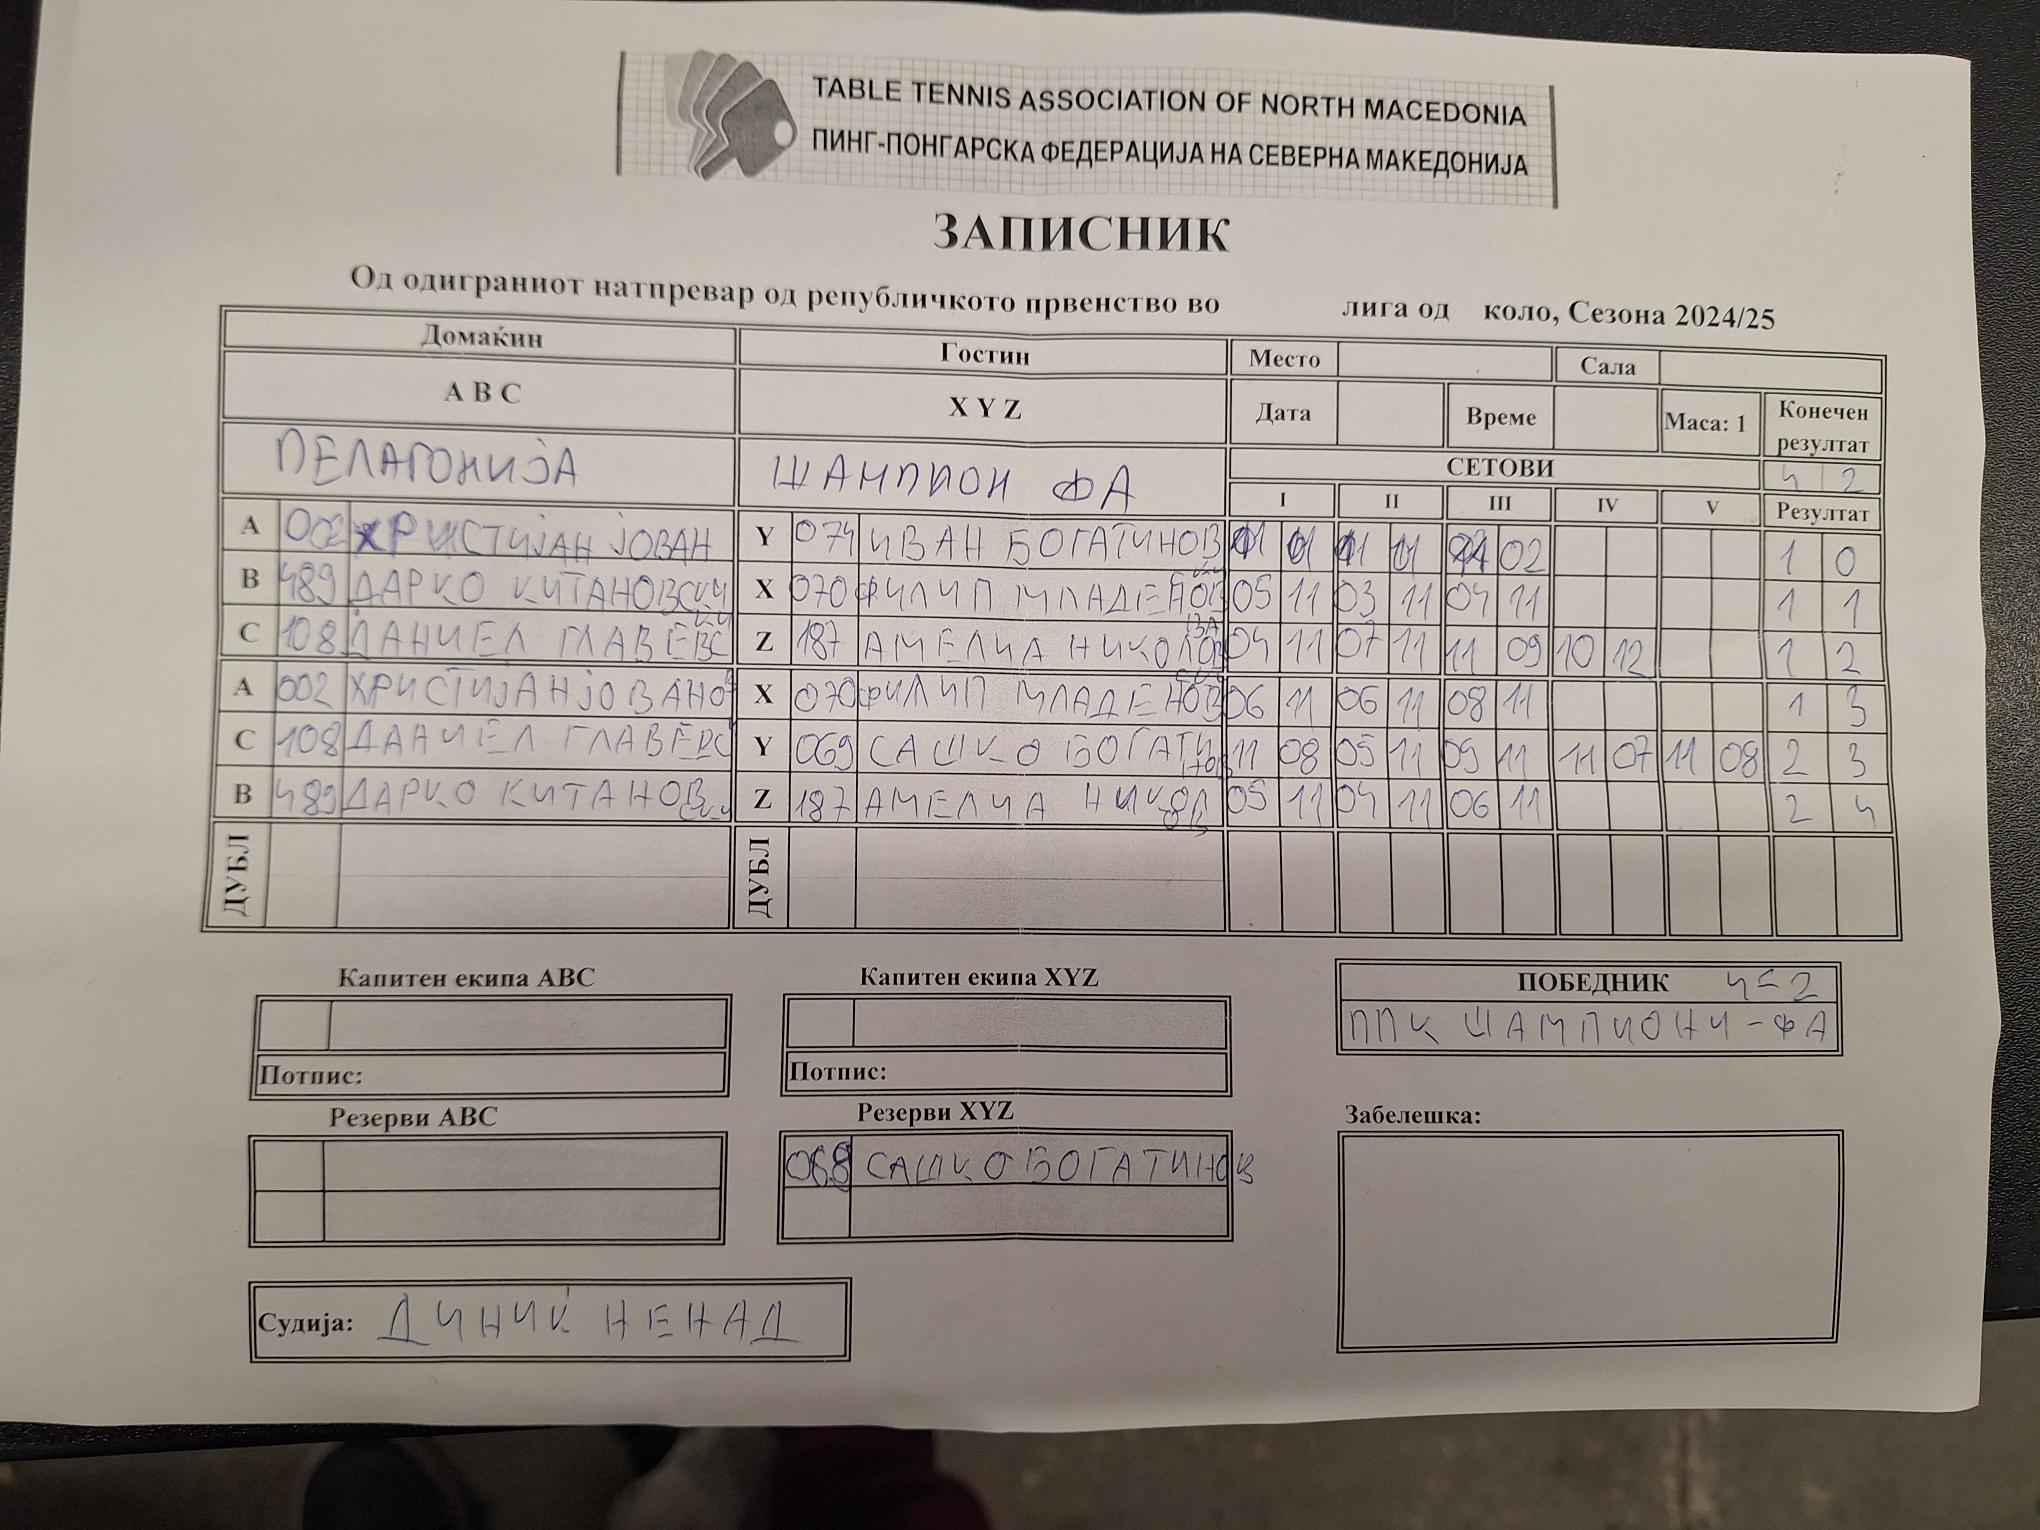 TABLE TENNIS ASSOCIATION OF NORTH MACEDONIA
ПИНГ-ПОНГАРСКА ФЕДЕРАЦИЈА НА СЕВЕРНА МАКЕДОНИЈА
ЗАПИСНИК
Од одиграниот натпревар од републичкото првенство во лига од коло, Сезона 2024/25
Домаќин Гостин Место Сала
A B C X Y Z Дата Време Маса: 1 Конечен резултат
ПЕЛАГОНИЈА ШАМПИОН ФА СЕТОВИ 4 2
I II III IV V Резултат
A 002 ХРИСТИЈАН ЈОВАН Y 074 ИВАН БОГАТИНОВ 02 1 0
B 489 ДАРКО КИТАНОВСКИ X 070 ФИЛИП МЛАДЕНОВСКИ 05 11 03 11 04 11 1 1
C 108 ДАНИЕЛ ГЛАВЕВСКИ Z 187 АМЕЛИА НИКОЛОВА 04 11 07 11 11 09 10 12 1 2
A 002 ХРИСТИЈАН ЈОВАНОВ X 070 ФИЛИП МЛАДЕНОВСКИ 06 11 06 11 08 11 1 3
C 108 ДАНИЕЛ ГЛАВЕВС Y 069 САШКО БОГАТИНОВ 11 08 05 11 09 11 11 07 11 08 2 3
B 489 ДАРКО КИТАНОВСКИ Z 187 АМЕЛИА НИКОЛОВ 05 11 04 11 06 11 2 4
ДУБЛ ДУБЛ
Капитен екипа ABC Капитен екипа XYZ ПОБЕДНИК 4-2
ППК ШАМПИОНИ-ФА
Потпис: Потпис:
Резерви ABC Резерви XYZ Забелешка:
САШКО БОГАТИНОВ
Судија: ДИНИЌ НЕНАД